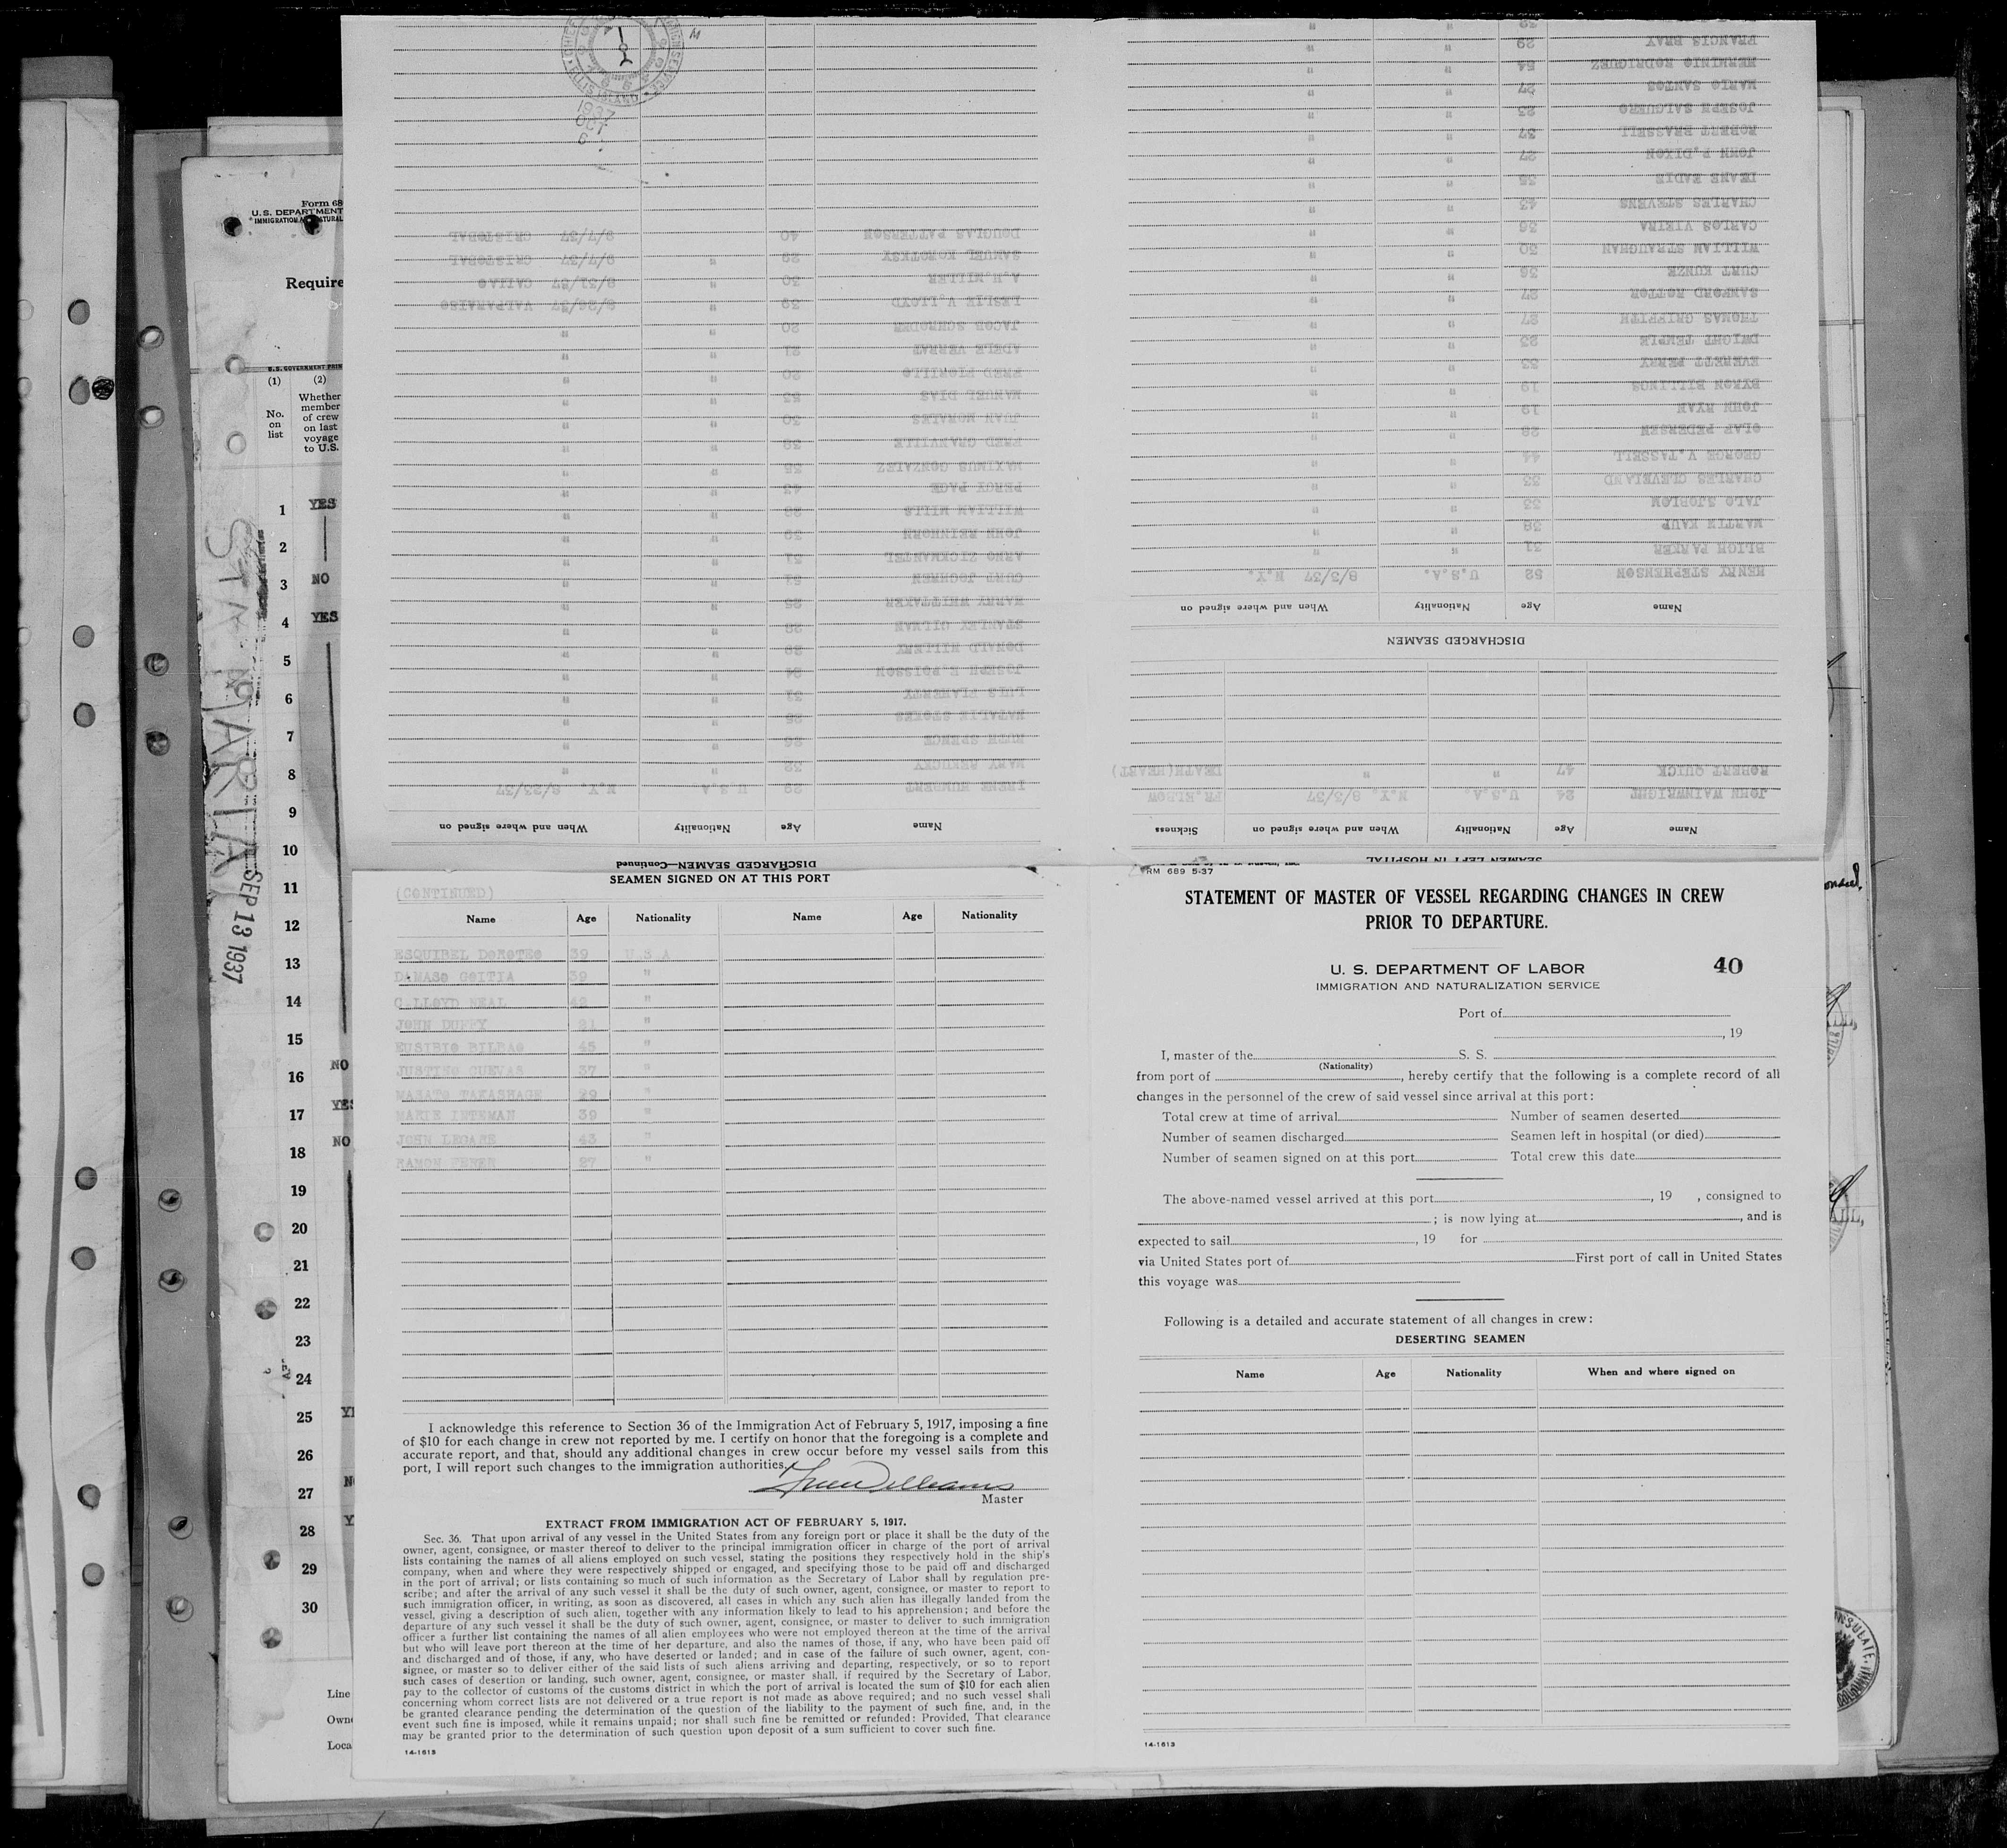 CHIEF
ELLIS ISLAND
1937
OCT
6
DOUGLAS PATTERSON 40 9/7/37 CRISTOBAL
SAMUEL KOMOTSKY 29 " 9/7/37 CRISTOBAL
A.H.MILLER 30 " 8/21/37 CALLAO
LESLIE A.LLOYD 39 " 8/28/37 VALPARAISO
JACOB SCHRODER 20 " "
ADELE VERRAT 21 " "
FRED FIORILLO 20 " "
MANUEL DIAS 53 " "
JUAN MORALES 30 " "
FRED GRANVILLE 38 " "
MAXIMUS GONZALEZ 35 " "
PERCY PAGE 43 " "
WILLIAM MILLS 28 " "
JOHN REINHORN 39 " "
ARNO SICKMANTEL 51 " "
CURT JOCHMEN 54 " "
HARRY WHITTAKER 25 " "
STANLEY GILMAN 28 " "
DONALD MILLERY 29 " "
JOSEPH E.POISSON 24 " "
LUKE FLAHERTY 33 " "
NATALIE STOKES 25 " "
RUTH SPENCE 26 " "
MARY BERUCKY 32 " "
IRENE HUNDERT 29 U.S.A. N.Y. 8/23/37
Name Age Nationality When and where signed on
DISCHARGED SEAMEN—Continued
FRANCIS BRAY 29 " "
HERMINIO RODRIQUEZ 54 " "
MARIO SANTOS 27 " "
JOSEPH SALGUERO 23 " "
ROBERT BRASSELL 37 " "
JOHN P.DIXON 27 " "
DEANE EADIE 35 " "
CHARLES STEVENS 43 " "
CARLOS VIEIRA 36 " "
WILLIAM STRAUGHAN 30 " "
CURT KUNZE 36 " "
SANFORD ROTTOR 27 " "
THOMAS GRIFFITH 27 " "
DWIGHT TEMPLE 23 " "
EVERETT PERRY 33 " "
BYRON BILLINGS 19 " "
JOHN RYAN 19 " "
OLAF PEDERSEN 28 " "
GEORGE V.TASSELL 44 " "
CHARLES CLEVELAND 33 " "
JALO SJOBLOM 33 " "
MARTIN KAUP 38 " "
BLIGH PARKER 31 " "
HENRY STEPHENSON 52 U.S.A. 8/3/37 N.Y.
Name Age Nationality When and where signed on
DISCHARGED SEAMEN
ROBERT QUICK 47 " " DEATH(HEART)
JOHN WAINWRIGHT 24 U.S.A. N.Y. 8/3/37 FR.ELBOW
Name Age Nationality When and where signed on Sickness
SEAMEN LEFT IN HOSPITAL
Form 68
U.S. DEPARTMENT
IMMIGRATION
Require
U.S. GOVERNMENT PRIN
(1) (2)
No. on list
Whether member of crew on last voyage to U.S.
1 YES
2
3 NO
4 YES
5
6
7
8
9
10
11
12
13
14
15
16 NO
17 YES
18 NO
19
20
21
22
23
24
25
26
27
28
29
30
Line
Owne
Loca
STA MARTA
SEP 13 1937
SEAMEN SIGNED ON AT THIS PORT
(CONTINUED)
Name Age Nationality Name Age Nationality
ESQUIBEL DOROTEO 39 U.S.A
DAMASO GOITIA 39 "
C.LLOYD NEAL 42 "
JOHN DUFFY 21 "
EUSIBIO BILBAO 45 "
JUSTINO CUEVAS 37 "
MASATO TAKASHAGE 29 "
MARIE INTEMAN 39 "
JOHN LEGARE 43 "
RAMON FERER 27 "
I acknowledge this reference to Section 36 of the Immigration Act of February 5, 1917, imposing a fine
of $10 for each change in crew not reported by me. I certify on honor that the foregoing is a complete and
accurate report, and that, should any additional changes in crew occur before my vessel sails from this
port, I will report such changes to the immigration authorities.
Master
EXTRACT FROM IMMIGRATION ACT OF FEBRUARY 5, 1917.
Sec. 36. That upon arrival of any vessel in the United States from any foreign port or place it shall be the duty of the
owner, agent, consignee, or master thereof to deliver to the principal immigration officer in charge of the port of arrival
lists containing the names of all aliens employed on such vessel, stating the positions they respectively hold in the ship's
company, when and where they were respectively shipped or engaged, and specifying those to be paid off and discharged
in the port of arrival; or lists containing so much of such information as the Secretary of Labor shall by regulation pre-
scribe; and after the arrival of any such vessel it shall be the duty of such owner, agent, consignee, or master to report to
such immigration officer, in writing, as soon as discovered, all cases in which any such alien has illegally landed from the
vessel, giving a description of such alien, together with any information likely to lead to his apprehension; and before the
departure of any such vessel it shall be the duty of such owner, agent, consignee, or master to deliver to such immigration
officer a further list containing the names of all alien employees who were not employed thereon at the time of the arrival
but who will leave port thereon at the time of her departure, and also the names of those, if any, who have been paid off
and discharged and of those, if any, who have deserted or landed; and in case of the failure of such owner, agent, con-
signee, or master so to deliver either of the said lists of such aliens arriving and departing, respectively, or so to report
such cases of desertion or landing, such owner, agent, consignee, or master shall, if required by the Secretary of Labor,
pay to the collector of customs of the customs district in which the port of arrival is located the sum of $10 for each alien
concerning whom correct lists are not delivered or a true report is not made as above required; and no such vessel shall
be granted clearance pending the determination of the question of the liability to the payment of such fine, and, in the
event such fine is imposed, while it remains unpaid; nor shall such fine be remitted or refunded: Provided, That clearance
may be granted prior to the determination of such question upon deposit of a sum sufficient to cover such fine.
14-1613
RM 689 5-37
STATEMENT OF MASTER OF VESSEL REGARDING CHANGES IN CREW
PRIOR TO DEPARTURE.
U. S. DEPARTMENT OF LABOR
40
IMMIGRATION AND NATURALIZATION SERVICE
Port of
, 19
I, master of the S. S.
(Nationality)
from port of , hereby certify that the following is a complete record of all
changes in the personnel of the crew of said vessel since arrival at this port:
Total crew at time of arrival Number of seamen deserted
Number of seamen discharged Seamen left in hospital (or died)
Number of seamen signed on at this port Total crew this date
The above-named vessel arrived at this port , 19 , consigned to
; is now lying at , and is
expected to sail , 19 for
via United States port of First port of call in United States
this voyage was
Following is a detailed and accurate statement of all changes in crew:
DESERTING SEAMEN
Name Age Nationality When and where signed on
14-1613